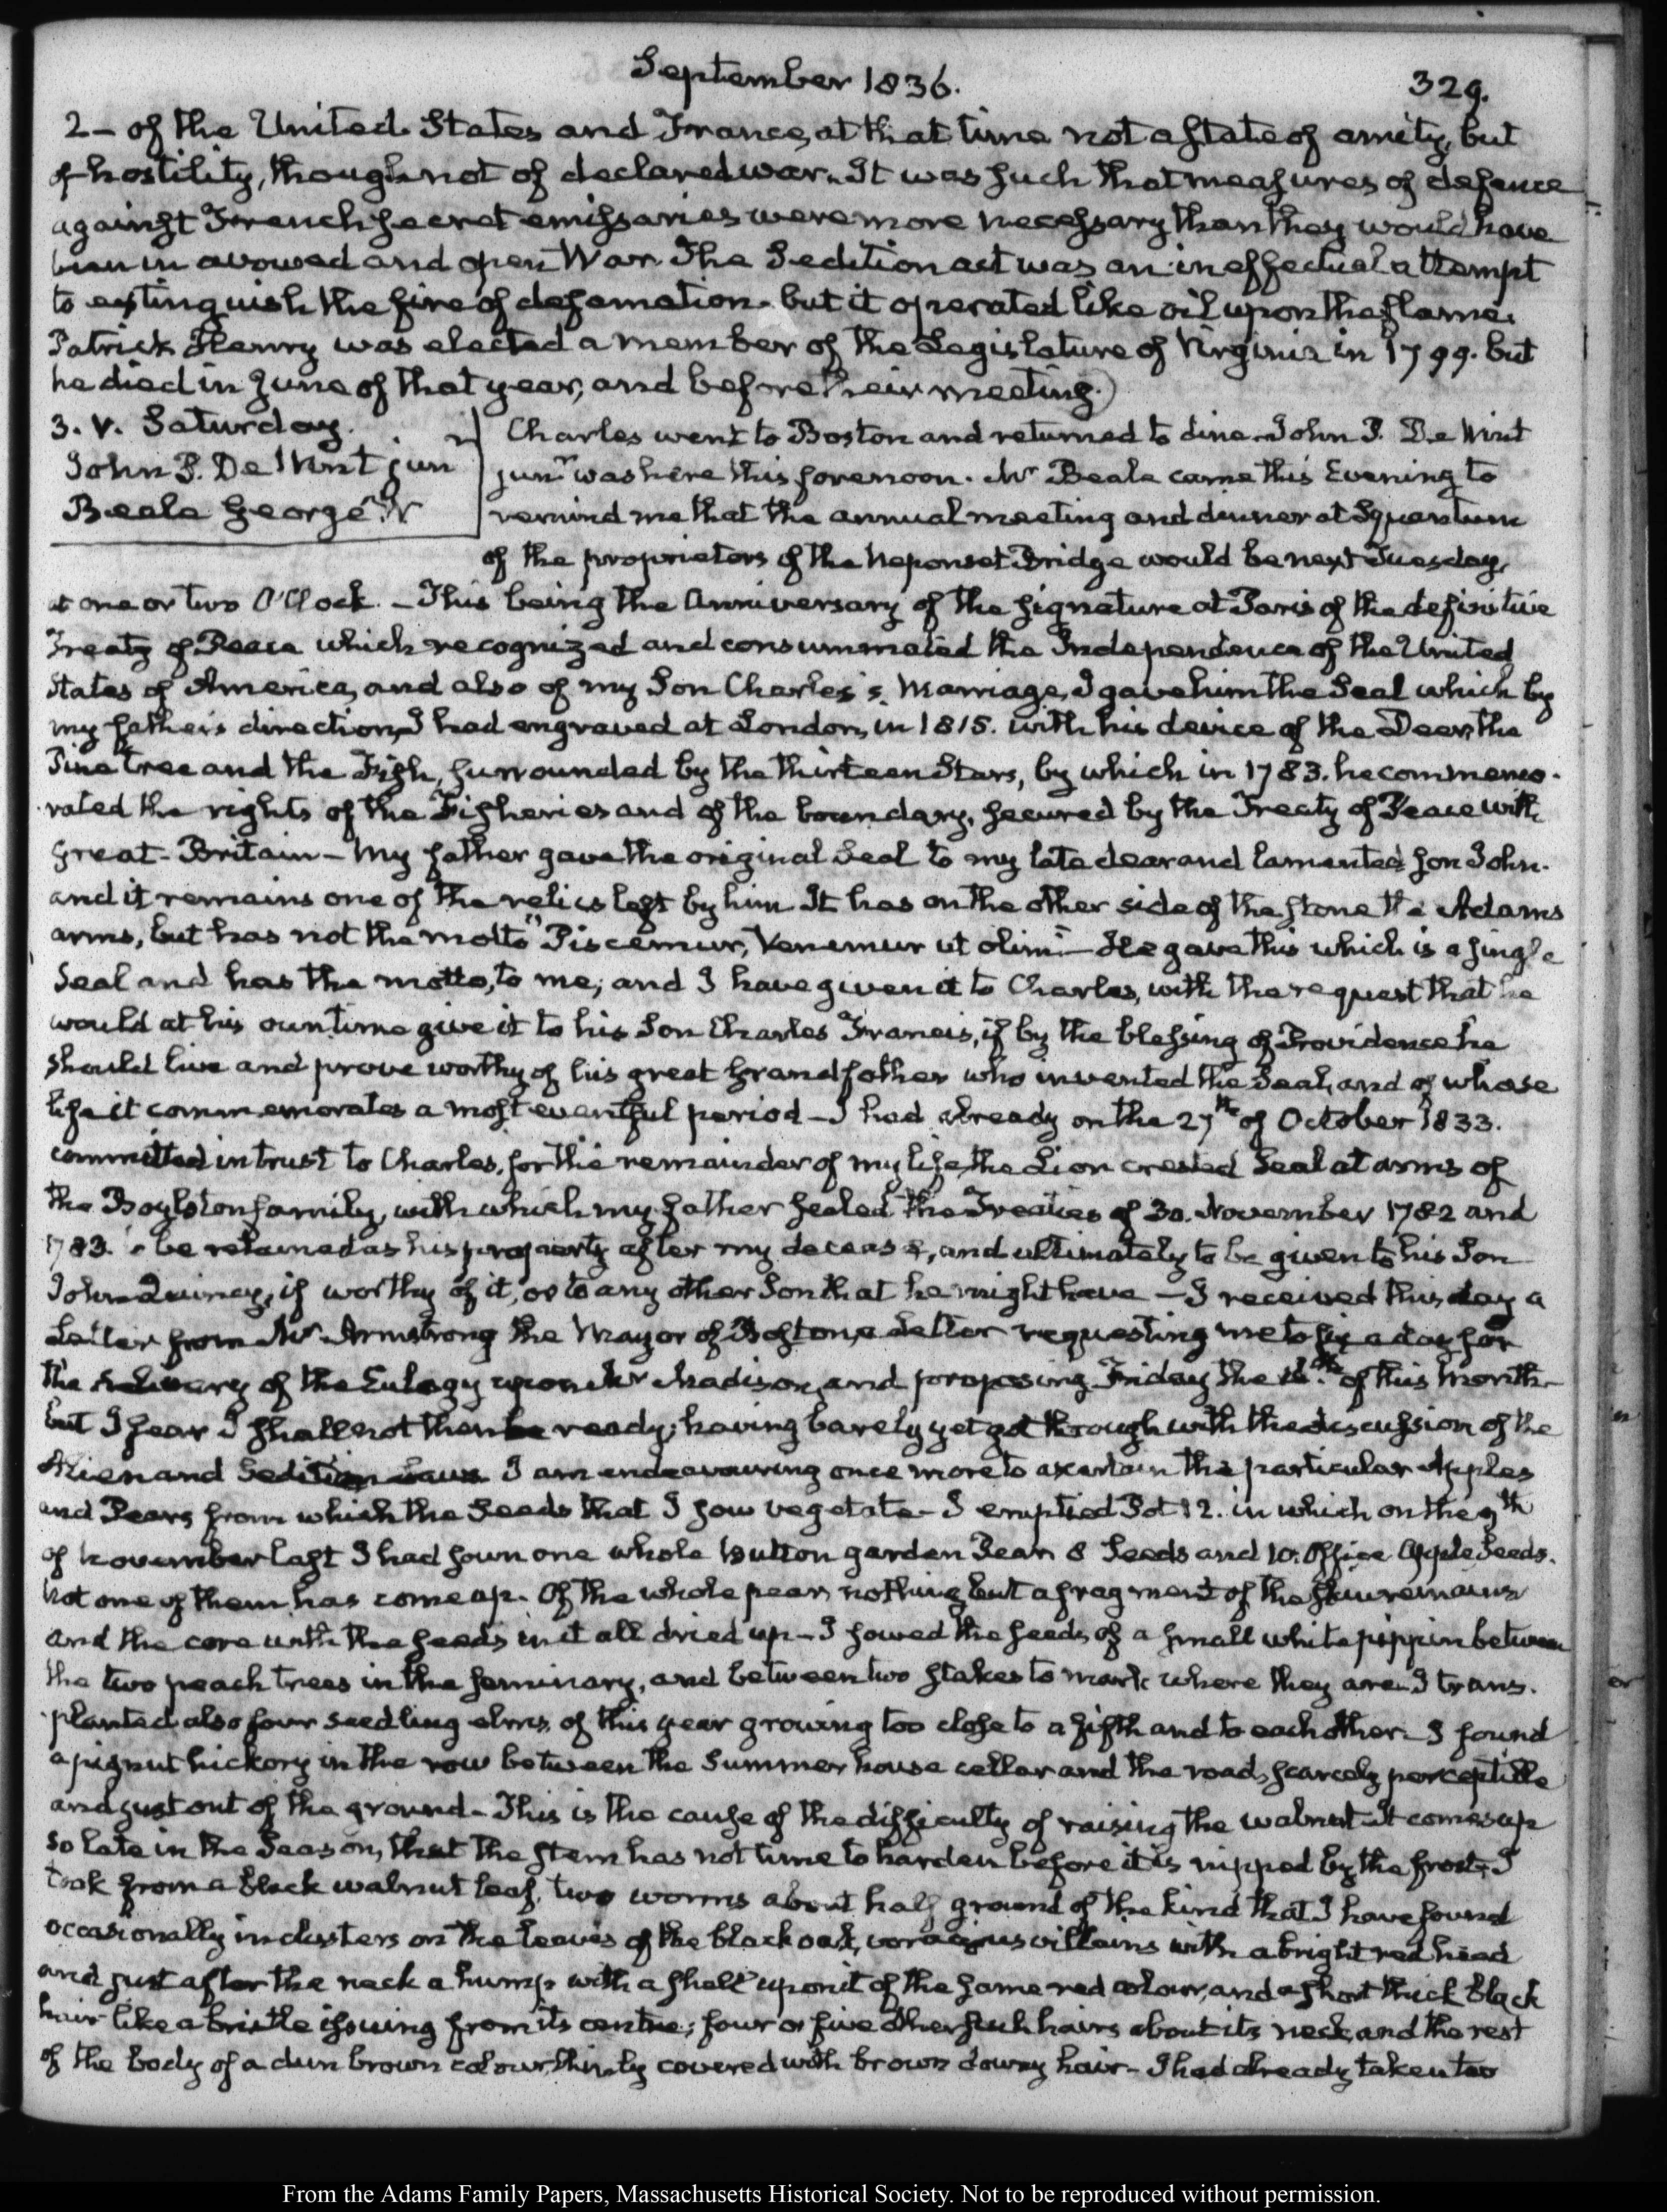 September 1836.
329.
2 - of the United States and France, at that time not a state of amity, but
of hostility, though not of declared war. It was such that measures of defence
against French secret emissaries were more necessary than they would have
been in avowed and open War. The Sedition act was an ineffectual attempt
to extinguish the fire of defamation. but it operated like oil upon the flame.
Patrick Henry was elected a member of the Legislature of Virginia in 1799. but
he died in June of that year, and before their meeting.)
3. V. Saturday.
John P. De Wint jun
Beale George W
Charles went to Boston and returned to dine. John P. De Wint
junr was here this forenoon. Mr Beale came this Evening to
remind me that the annual meeting and dinner at Squantum
of the proprietors of the Neponset Bridge would be next Tuesday,
at one or two O'Clock. - This being the Anniversary of the signature at Paris of the definitive
Treaty of Peace which recognized and consummated the Independence of the United
States of America, and also of my Son Charles's Marriage, I gave him the Seal which by
my father's direction, I had engraved at London, in 1815. with his device of the Deer, the
Pine tree and the Fish, surrounded by the thirteen Stars, by which in 1783. he commemo-
rated the rights of the Fisheries and of the boundary, secured by the Treaty of Peace with
Great-Britain - My father gave the original Seal to my late dear and lamented son John.
and it remains one of the relics left by him It has on the other side of the stone the Adams
arms, but has not the motto "Piscemur, Venemur ut olim" - He gave this which is a single
Seal and has the motto, to me; and I have given it to Charles, with the request that he
would at his own time give it to his Son Charles Francis, if by the blessing of Providence he
should live and prove worthy of his great Grandfather who invented the Seal, and of whose
life it commemorates a most eventful period - I had already on the 27th of October 1833.
committed in trust to Charles, for the remainder of my life, the Lion crested Seal at arms of
the Boylston family, with which my father sealed the Treaties of 30. November 1782 and
1783. to be retained as his property after my decease, and ultimately to be given to his Son
John Quincy, if worthy of it, or to any other Son that he might have - I received this day a
Letter from Mr Armstrong the Mayor of Boston, a Letter requesting me to fix a day for
the delivery of the Eulogy upon Mr Madison, and proposing Friday the of this Month
but I fear I shall not then be ready; having barely yet got through with the discussion of the
Alien and Sedition Laws. I am endeavouring once more to ascertain the particular Apples
and Pears from which the Seeds that I sow vegetate - I emptied Pot 12. in which on the 9th
of November last I had sown one whole Button garden Pear 8 Seeds and 10. Office Apple Seeds.
not one of them has come up. Of the whole pear, nothing but a fragment of the skin remains
and the core with the seeds in it all dried up - I sowed the seeds of a small white pippin between
the two peach trees in the seminary, and between two stakes to mark where they are. I trans-
planted also four seedling elms, of this year growing too close to a fifth and to each other. I found
a pignut hickory in the row between the Summer house cellar and the road, scarcely perceptible
and just out of the ground - This is the cause of the difficulty of raising the walnut. It comes up
so late in the Season, that the stem has not time to harden before it is nipped by the frost. I
took from a black walnut leaf, two worms about half ground of the kind that I have found
occasionally in clusters on the leaves of the black oak, voracious villains with a bright red head
and just after the neck a hump with a shell upon it of the same red colour, and a short thick black
hair like a bristle issuing from its centre; four or five other such hairs about its neck, and the rest
of the body of a dun brown colour thinly covered with brown downy hair - I had already taken two
From the Adams Family Papers, Massachusetts Historical Society. Not to be reproduced without permission.